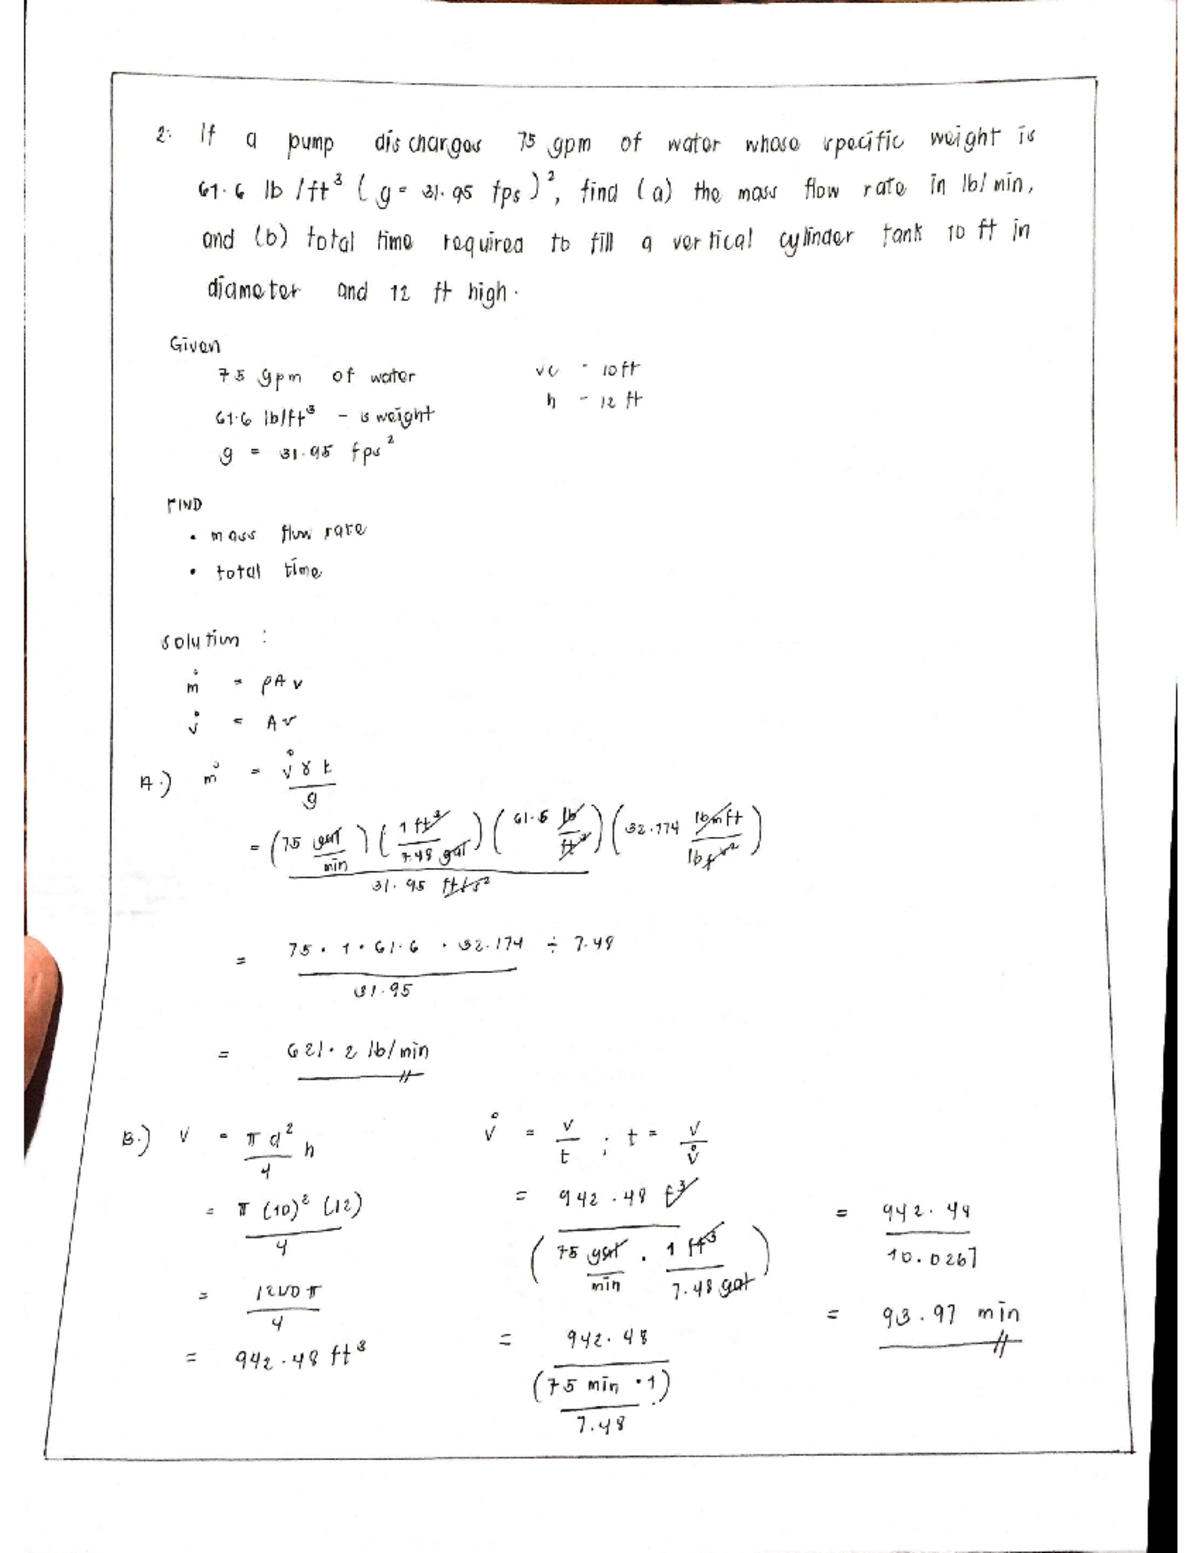 2. If a pump discharges 75 gpm of water whose specific weight is
61.6 lb/ft³ (g = 31.95 fps)², find (a) the mass flow rate in lb/min,
and (b) total time required to fill a vertical cylinder tank 10 ft in
diameter and 12 ft high.
Given
75 gpm of water
61.6 lb/ft³ - is weight
g = 31.95 fps²
vc - 10 ft
h - 12 ft
FIND
• mass flow rate
• total time
solution :
ṁ = ρAv
v̇ = Av
A.) ṁ = v̇ γ k / g
= (75 gal/min) (1 ft³/7.48 gal) (61.6 lb/ft³) (32.174 lbm ft/lbf s²) / 31.95 ft/s²
= 75 · 1 · 61.6 · 32.174 ÷ 7.48 / 31.95
= 621.2 lb/min
B.) V = π d² / 4 h
= π (10)² (12) / 4
= 1200 π / 4
= 942.48 ft³
v̇ = v/t ; t = v/v̇
= 942.48 ft³ / (75 gal/min · 1 ft³/7.48 gal)
= 942.48 / (75 min · 1) / 7.48
= 942.48 / 10.0267
= 93.97 min